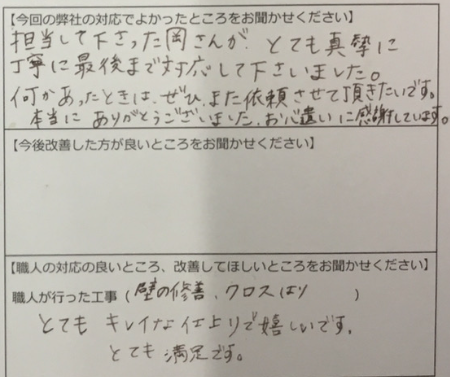 【今回の弊社の対応でよかったところをお聞かせください】
担当して下さった岡さんが、とても真摯に
丁寧に最後まで対応して下さいました。
何かあったときは、ぜひ、また依頼させて頂きたいです。
本当にありがとうございました。お心遣いに感謝しています。
【今後改善した方が良いところをお聞かせください】
【職人の対応の良いところ、改善してほしいところをお聞かせください】
職人が行った工事（壁の修善、クロスはり）
とてもキレイな仕上りで嬉しいです。
とても満足です。